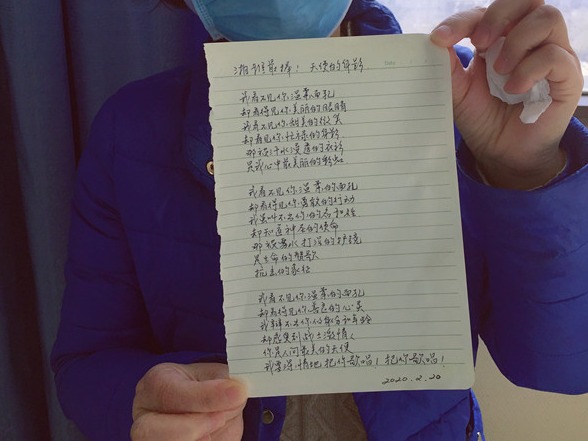 湘雅最棒！天使的身影
Date
我看不见你，温柔的面孔
却看得见你，美丽的眼睛
我看不见你，甜美的微笑
却看见你，忙碌的身影
那被汗水浸透的衣衫
是我心中最美丽的
我看不见你，温柔的面孔
却看得见你，勇敢的行动
我虽叫不出你的名和姓
却知道神圣的使命
那被雾水打湿的护镜
是生命的赞歌
抗击的象征
我看不见你，温柔的面孔
却看得见你，善良的心灵
我辨不出你的身份和年龄
却感受到战士激情
你是人间最美的天使
我要深情地把你歌唱！把你歌唱！
2020.2.20